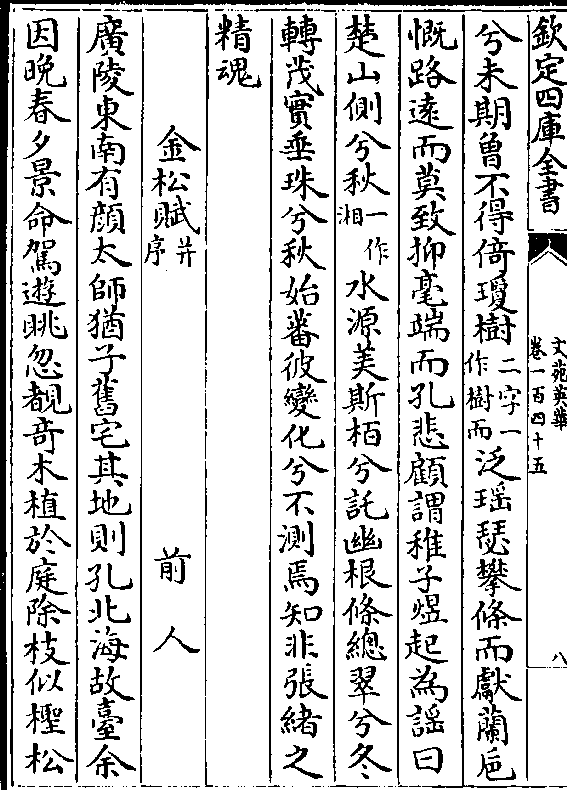 欽定四庫全書
文苑英華
卷一百四十五
八
兮未期曽不得倚瓊樹二字一作樹而泛瑶瑟攀條而獻蘭巵
慨路遠而莫致抑毫端而孔悲顧謂稚子熅起為謡曰
楚山側兮秋一作湘水源美斯栢兮託幽根條總翠兮冬
轉茂實垂珠兮秋始蕃彼變化兮不測焉知非張緒之
精魂
金松賦并序 前人
廣陵東南有顔太師猶子舊宅其地則孔北海故臺余
因晩春夕景命駕遊眺忽覩竒木植於庭除枝似檉松